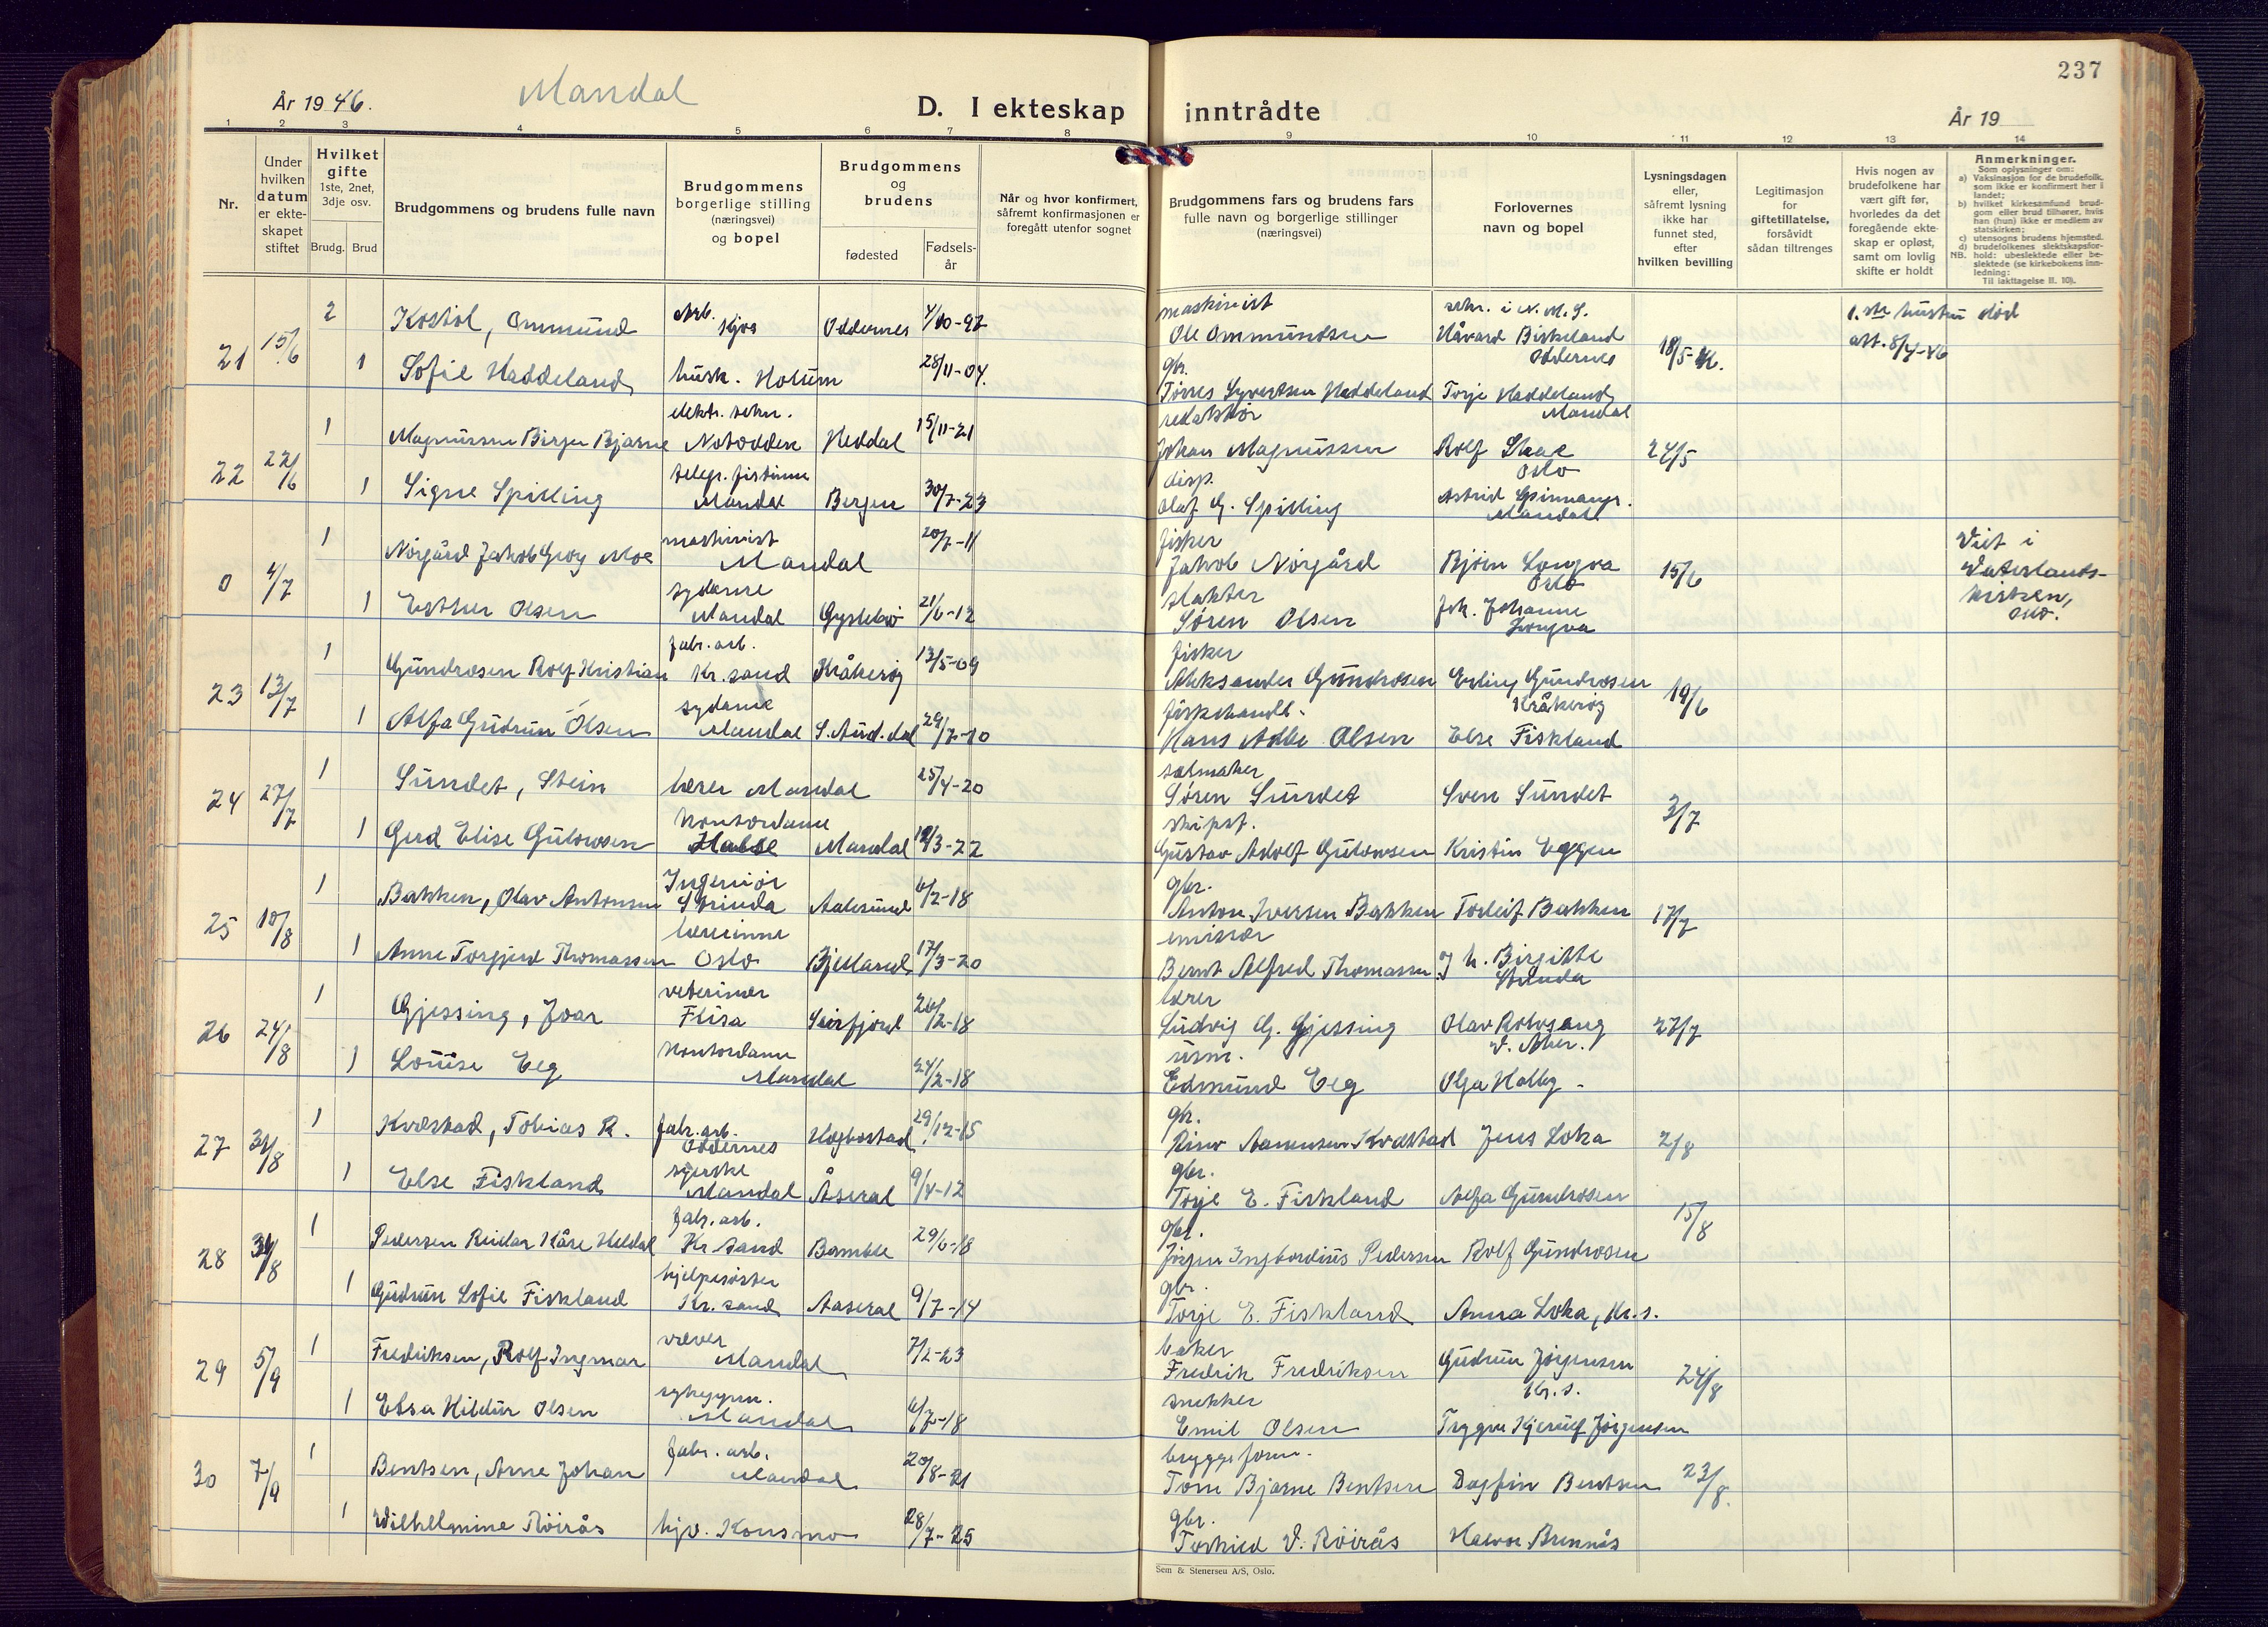 237
År 1946.
Mandal
D. I ekteskap inntrådte
År 19
1 2 3 4 5 6 7 8 9 10 11 12 13 14
Nr.
Under hvilken datum er ekteskapet stiftet
Hvilket gifte
1ste, 2net, 3dje osv.
Brudg. Brud
Brudgommens og brudens fulle navn
Brudgommens borgerlige stilling (næringsvei) og bopel
Brudgommens og brudens
fødested
Fødselsår
Når og hvor konfirmert, såfremt konfirmasjonen er foregått utenfor sognet
Brudgommens fars og brudens fars fulle navn og borgerlige stillinger (næringsvei)
Forlovernes navn og bopel
Lysningsdagen eller, såfremt lysning ikke har funnet sted, efter hvilken bevilling
Legitimasjon for giftetillatelse, forsåvidt sådan tiltrenges
Hvis nogen av brudefolkene har vært gift før, hvorledes da det foregående ekteskap er opløst, samt om lovlig skifte er holdt
Anmerkninger.
Som oplysninger om:
a) Vaksinasjon for de brudefolk, som ikke er konfirmert her i landet;
b) hvilket kirkesamfund brudgom eller brud tilhører, hvis han (hun) ikke er medlem av statskirken;
c) utensogns brudens hjemsted.
d) brudefolkenes slektskapsforhold: ubeslektede eller beslektede (se kirkebokens innledning:
NB. Til iakttagelse II. 10).
21 15/6
2 Kostøl, Ommund Arb. Kjos Oddernes 4/10-92 maskinist Ole Ommundsen sekr. i N.M.S. Håvard Birkeland Oddernes 18/5-46. 1.ste hustru død att. 8/4-46
1 Sofie Haddeland husk. Holum 28/11-04. gbr. Tørres Syvertsen Haddeland Torje Haddeland Mandal
22 22/6
1 Magnussen Birger Bjarne elektr. tekn. Notodden Heddal 15/11-21 redaktør Johan Magnussen Rolf Skaae Oslo 24/5
1 Signe Spilling telegr.fistinne Mandal Bergen 30/7-23 disp. Olaf G. Spilling Astrid Spinnangr. Mandal
0 4/7
1 Nørgård Jakob Georg Moe maskinist Mandal 20/7-11 fisker Jakob Nørgård Bjørn Longva Oslo 15/6 Viet i Vaterlandskirken, Oslo.
1 Esther Olsen sydame Mandal Gyslebø 21/6-12 slakter Søren Olsen frk. Johanne Longva
23 13/7
1 Gundrosen Rolf Kristian fabr. arb. Kr.sand Kråkerøy 13/5-09 fisker Aleksander Gundrosen Erling Gundrosen Kråkerøy 19/6
1 Alfa Gudrun Olsen sydame Mandal S.Aud.dal 29/7-10 fiskehandl. Hans Adler Olsen Else Fiskland
24 27/7
1 Sundet, Stein lærer Mandal 25/4-20 salmaker Søren Sundet Sven Sundet 3/7
1 Gerd Elise Gulowsen kontordame Halse Mandal 12/3-22 skipsf. Gustav Adolf Gulowsen Kristin Eggen
25 10/8
1 Bakken, Olav Antonsen Ingeniør Strinda Aalesund 6/2-18 gbr. Anton Iversen Bakken Torleif Bakken 17/7
1 Anne Torgjerd Thomassen lærerinne Oslo Bjelland 17/3-20 emissær Bernt Alfred Thomassen Birgitte Strinda
26 24/8
1 Gjessing, Joar veterinær Flisa Leirfjord 20/2-18 lærer Ludvig G. Gjessing Olav Rotvgang V. Aker. 27/7
1 Louise Eeg kontordame Mandal 24/2-18 urm. Edmund Eeg Olga Holby -
27 31/8
1 Kvelstad, Tobias R. fabr. arb. Oddernes Hægbostad 29/12-15 gbr. Reier Aanensen Kvelstad Jens Loka 2/8
1 Else Fiskland syerske Mandal Åseral 9/4-12 gbr. Torje E. Fiskland Alfa Gundrosen
28 31/8
1 Pedersen Reidar Kåre Heldal fabr. arb. Kr.sand Bamble 29/6-18 gbr. Jørgen Ingbordius Pedersen Rolf Gundrosen 15/8
1 Gudrun Sofie Fiskland hjelpesøster Kr.sand Aaseral 9/7-14 gbr. Torje E. Fiskland Anna Loka, Kr.s.
29 5/9
1 Fredriksen, Rolf Ingmar væver Mandal 7/2-23 baker Fredrik Fredriksen Gudrun Jørgensen Kr.s. 24/8
1 Elsa Hildur Olsen sykegym. Mandal 6/7-18 snekker Emil Olsen Trygve Kjerulf Jørgensen
30 7/9
1 Bentsen, Arne Johan fabr. arb. Mandal 20/8-21 bryggeform. Tom Bjarne Bentsen Dagfin Bentsen 23/8.
1 Wilhelmine Röirås hjv. Konsmo 28/7-25 gbr. Torkied V. Röirås Halvor Brennås
Sem & Stenersen A/S, Oslo.